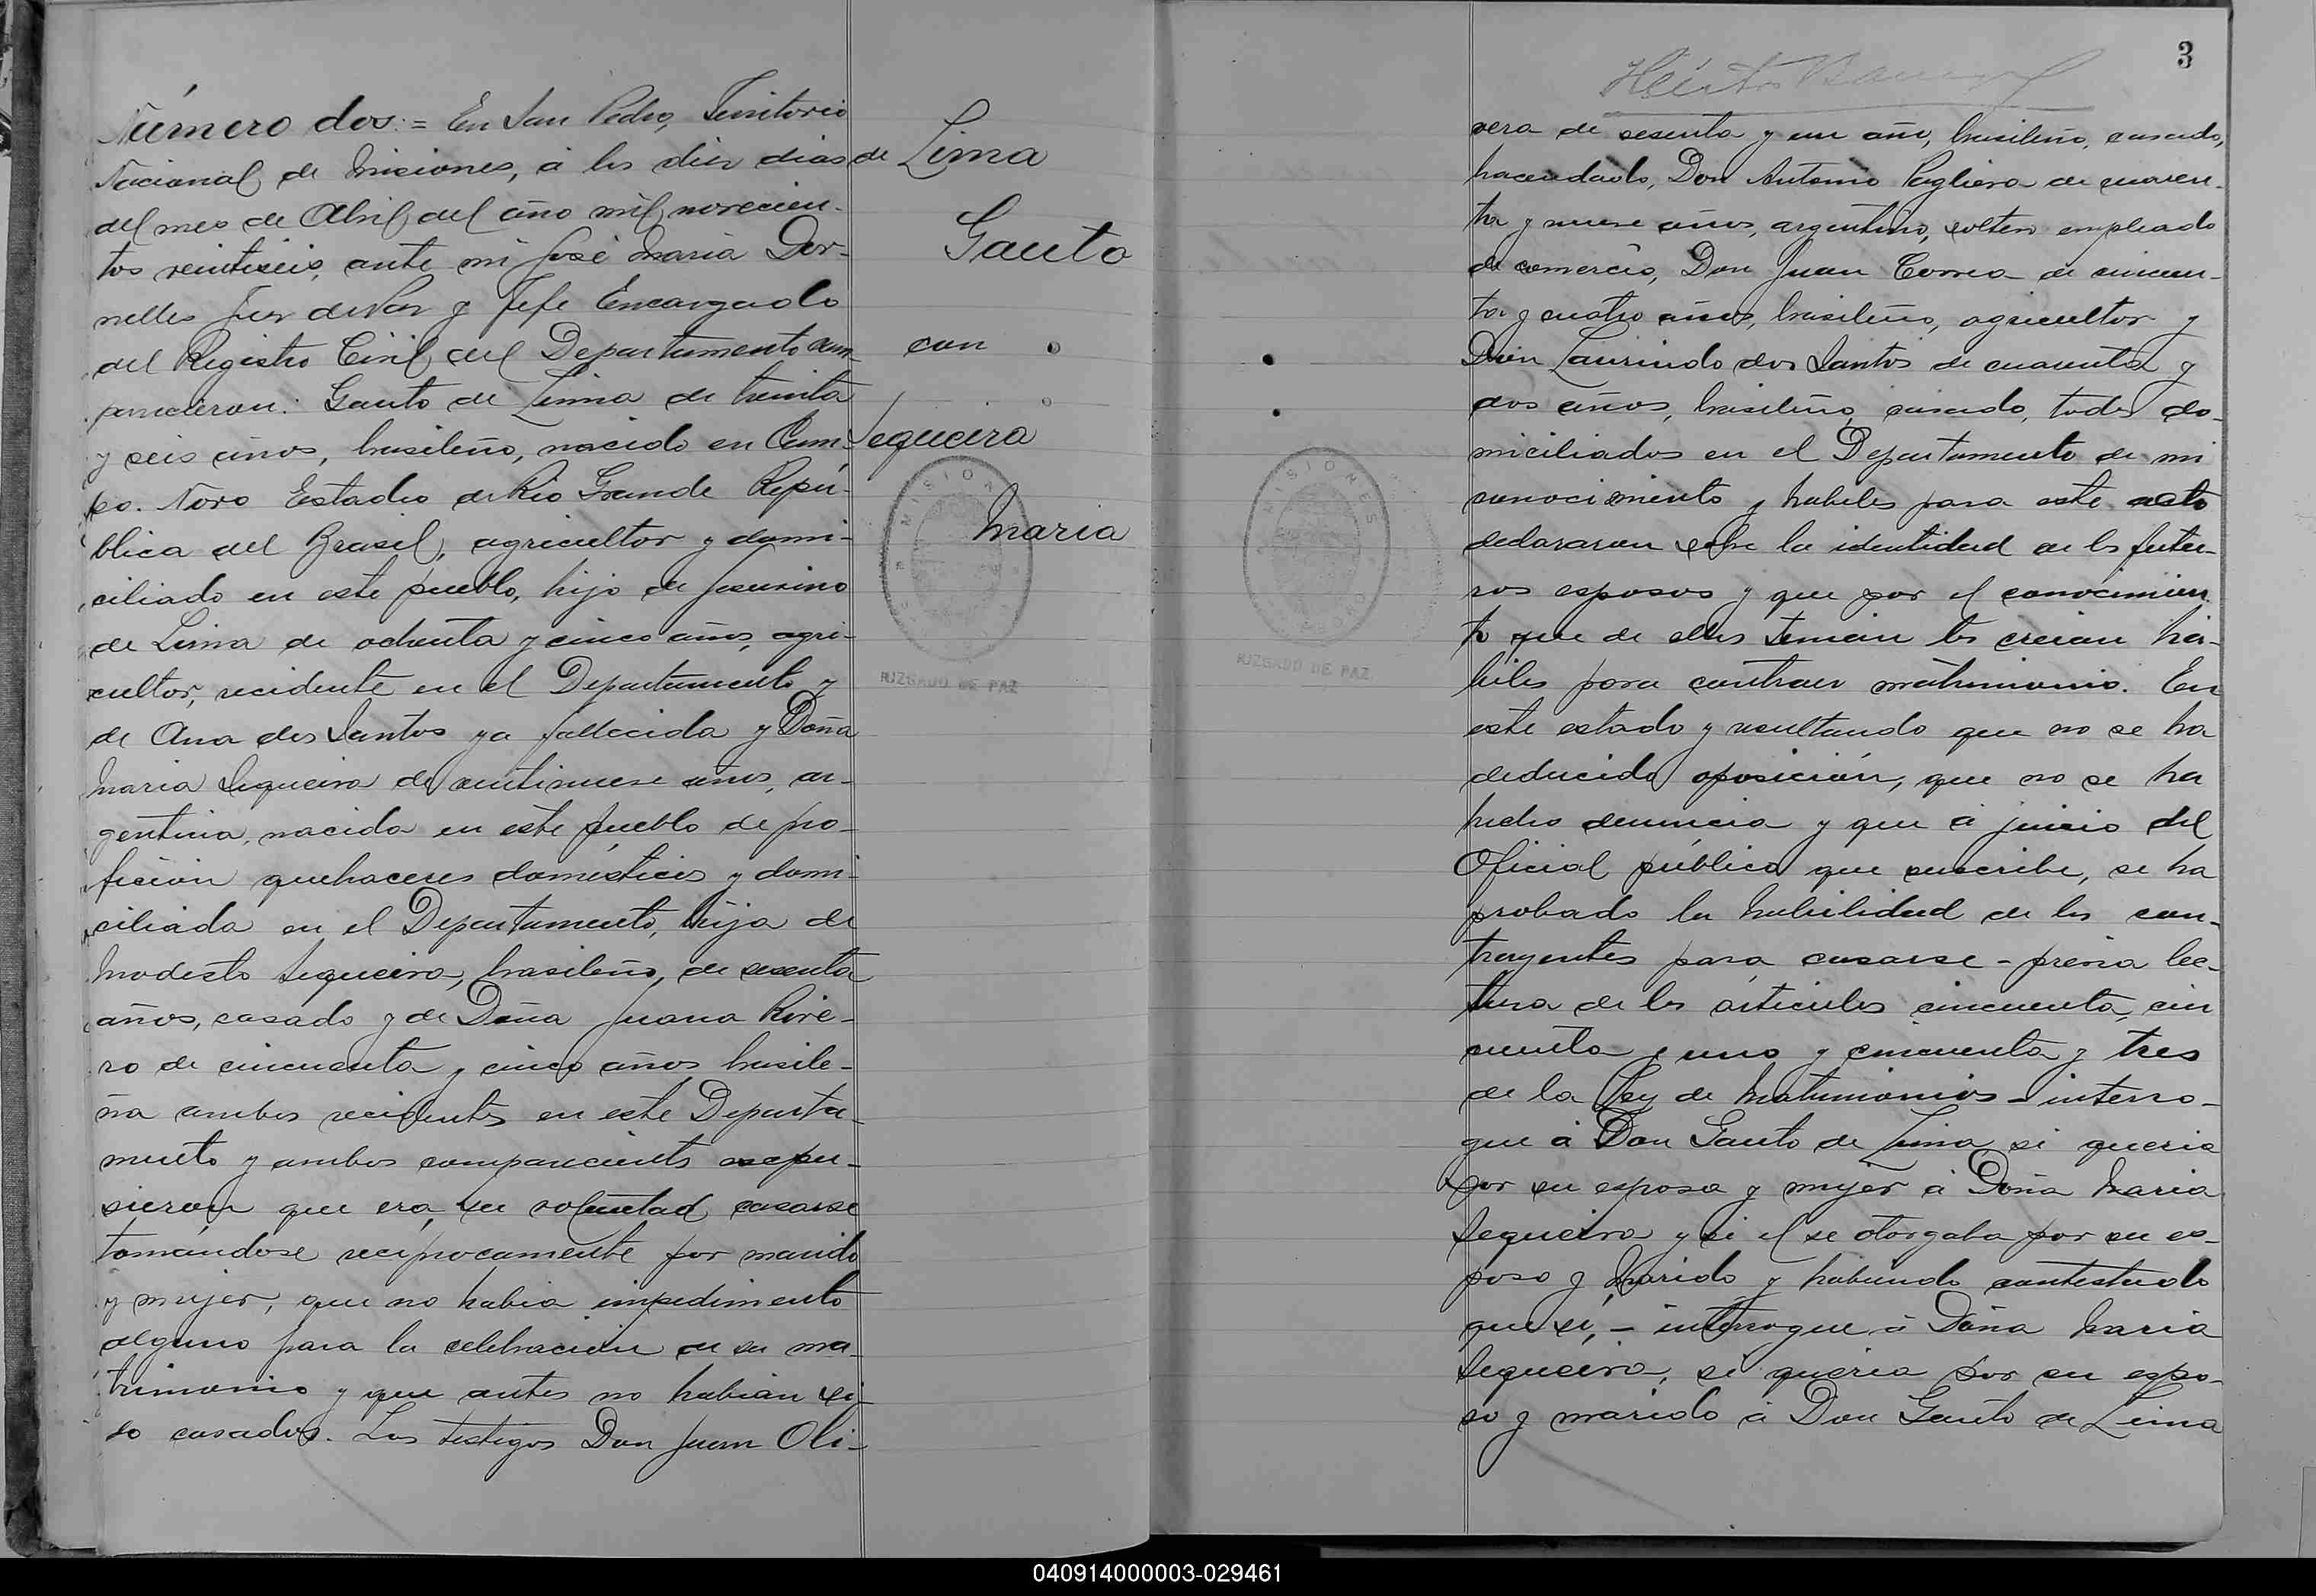 Número dos:= En San Pedro, Territorio
Nacional de Misiones, á los diez dias
del mes de Abril del año mil novecien-
tos veintiseis, ante mi José Maria Dor-
nelles Juez de Paz y Jefe Encargado
del Registro Civil del Departamento com-
parecieron: Gauto de Lima de treinta
y seis años, brasileño, nacido en Cam-
po. Novo Estado de Rio Grande Repú-
blica del Brasil, agricultor y domi-
ciliado en este pueblo, hijo de
de Lima de ochenta y cinco años, agri-
cultor, recidente en el Departamento y
de Ana dos Santos ya fallecida y Doña
Maria Sequeira de veintinueve años, ar-
gentina, nacida en este pueblo de pro-
fición quehaceres domésticos y domi-
ciliada en el Departamento, hija de
Modesto Sequeira, brasileño, de sesenta
años, casado y de Doña Juana Rive-
ro de cincuenta y cinco años brasile-
ña ambos recidentes en este Departa-
mento y ambos comparecientes
sieron que era su voluntad casarse
tomándose reciprocamente por marido
y mujer, que no habia impedimento
alguno para la celebración de su ma-
trimonio y que antes no habian si-
do casados. Los testigos Don Juan Oli-
de Lima
Gauto
con
Sequeira
Maria
MISIONES
JUZGADO DE PAZ
3
vera de sesenta y un año, brasileño, casado,
hacendado, Don Antonio Pagliera de cuaren-
ta y nueve años, argentino, soltero empleado
de comercio, Don Juan Correa de cincuen-
ta y cuatro años, brasileño, agricultor y
Don Laurindo dos Santos de cuarenta y
dos años, brasileño, casado, todos do-
miciliados en el Departamento de mi
conocimiento y habiles para este acto
declararon sobre la identidad de los futu-
ros esposos y que por el conocimien-
to que de ellos tenian los creian há-
biles para contraer matrimonio. En
este estado y resultando que no se ha
deducido oposición, que no se ha
hecho denuncia y que á juicio del
Oficial público que suscribe, se ha
probado la habilidad de los con-
trayentes para casarse - previa lec-
tura de los articulos cincuenta, cin
cuenta y uno y cincuenta y tres
de la Ley de Matrimonios - interro-
gue á Don Gauto de Lima si queria
por su esposa y mujer á Doña Maria
Sequeira y si el se otorgaba por su es-
poso y Marido y habiendo contestado
que si, - interrogue á Doña Maria
Sequeira, si queria por su espo-
so y marido á Don Gauto de Lima
MISIONES
JUZGADO DE PAZ
040914000003-029461